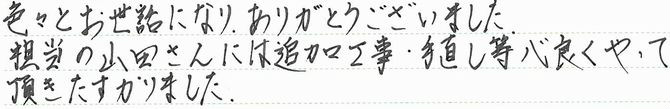 色々とお世話になり、ありがとうございました。
担当の山田さんには追加工事・手直し等心良くやって
頂きたすかりました。